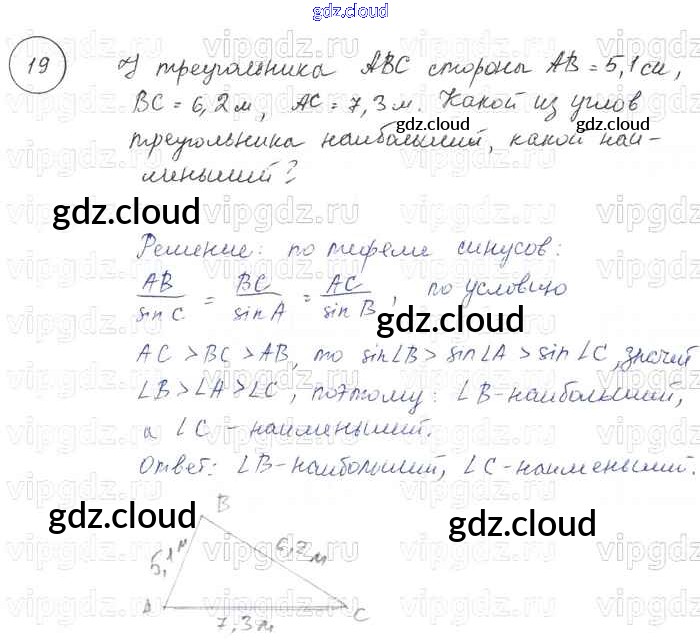 gdz.cloud
19 У треугольника ABC стороны AB = 5,1 см,
BC = 6,2 м, AC = 7,3 м. Какой из углов
треугольника наибольший, какой наи-
меньший?
gdz.cloud
gdz.cloud
Решение: по теореме синусов:
AB/sin C = BC/sin A = AC/sin B, по условию
gdz.cloud
AC > BC > AB, то sin∠B > sin∠A > sin∠C, значит
∠B > ∠A > ∠C, поэтому: ∠B - наибольший,
а ∠C - наименьший.
Ответ: ∠B - наибольший, ∠C - наименьший.
gdz.cloud
gdz.cloud
B
5,1 м
6,2 м
A
C
7,3 м
vipgdz.ru